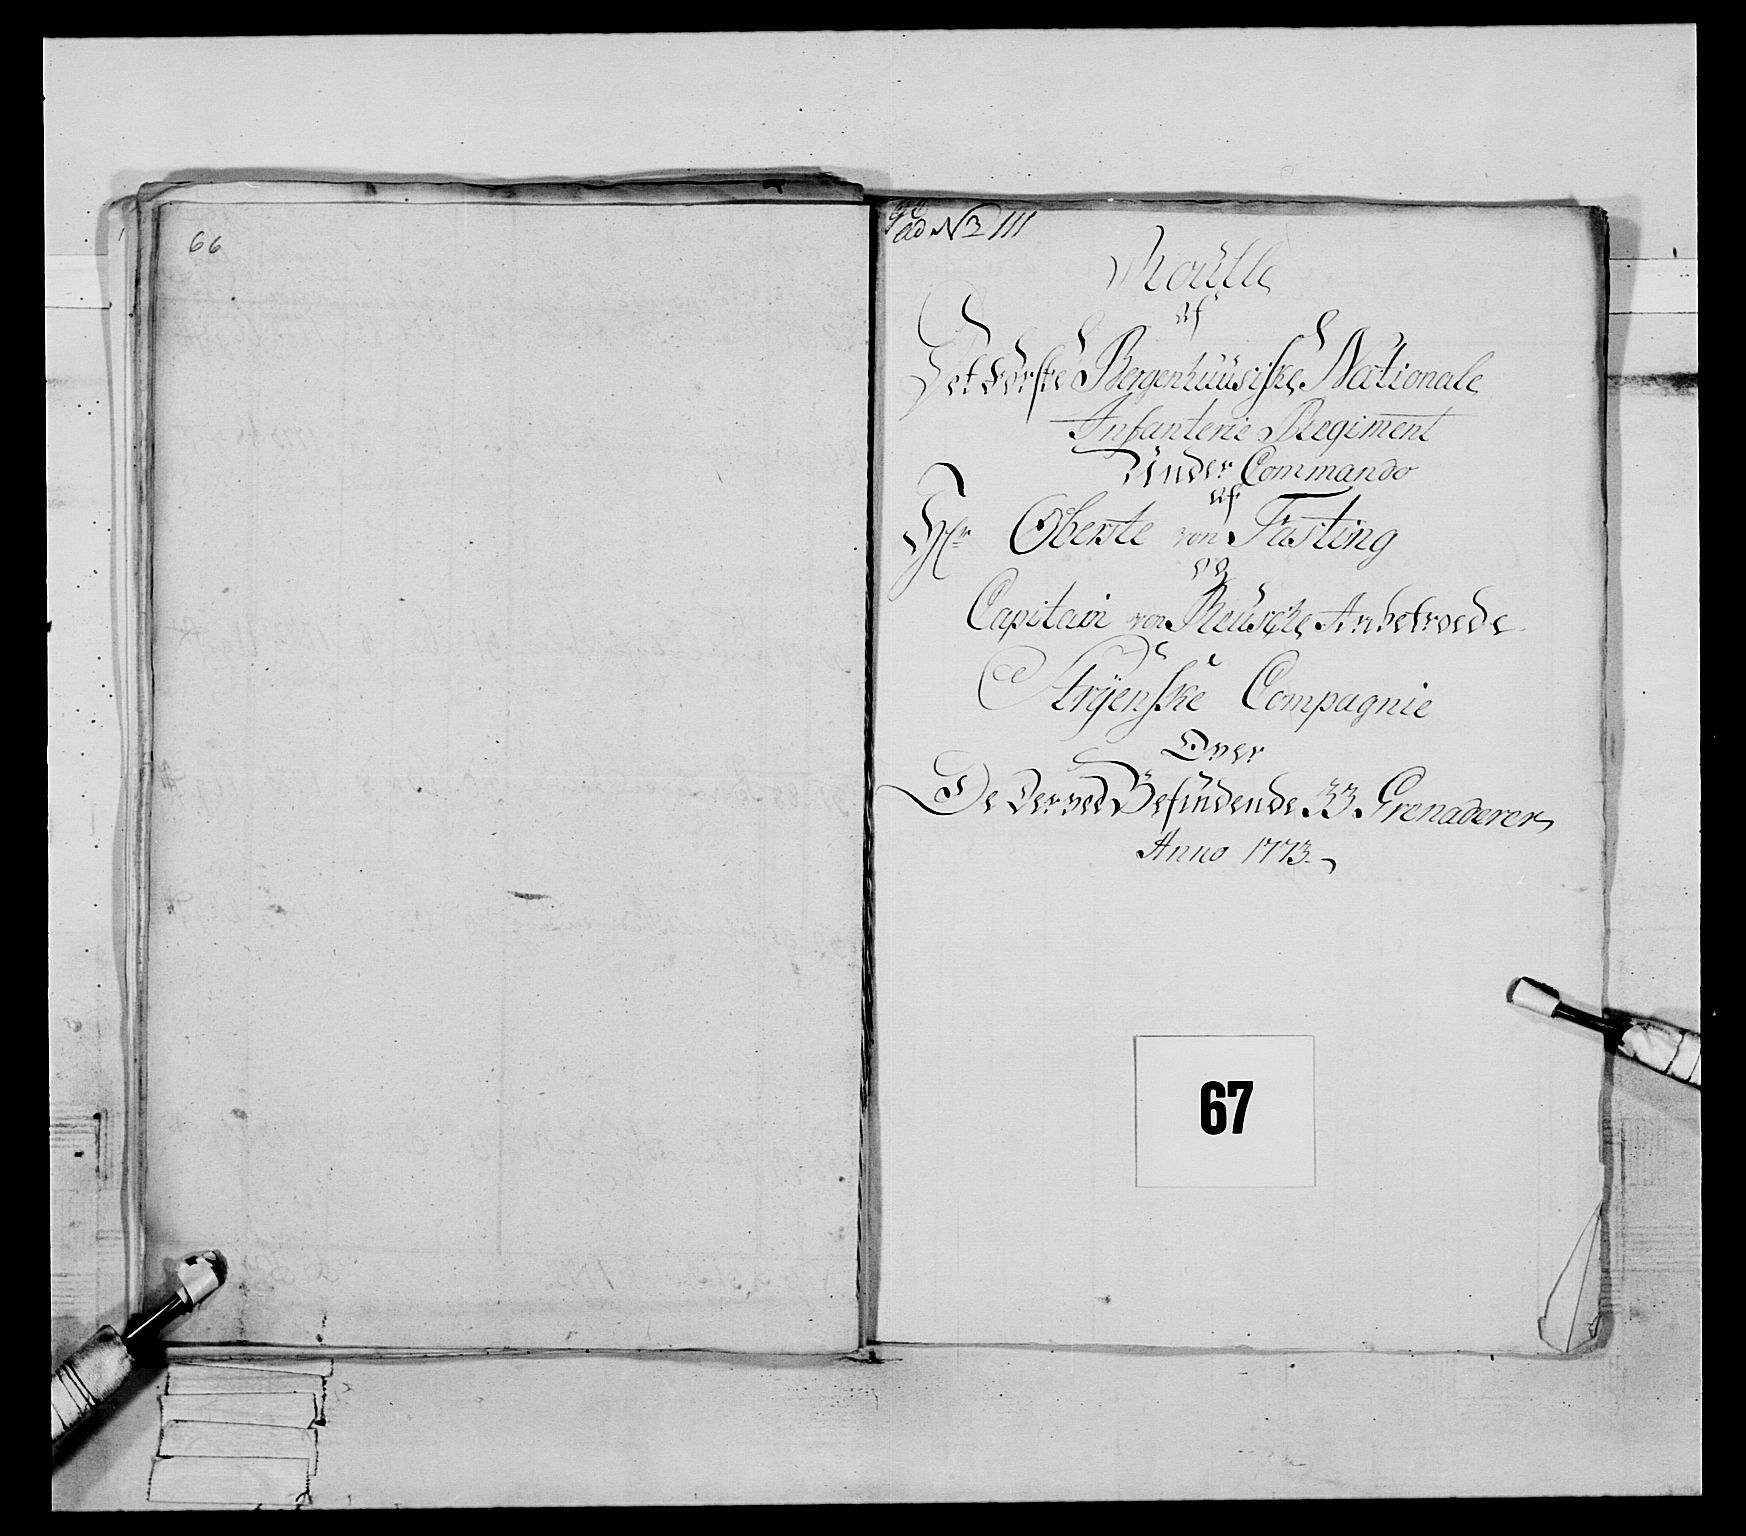 66
ad No 111
Roulle
af
Det Første Bergenhuusiske Nationale
Infanterie Regiment
Under Commando
af
Hr Oberste von Fasting
og
Capitain von Anbetroede
Stryenske Compagnie
Over
De derved Befindende 33 Grenaderer
Anno 1773.
67